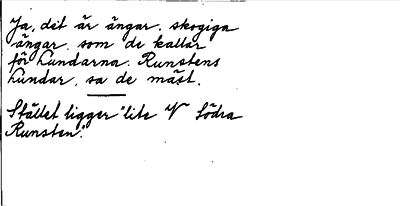 Ja, det är ängar, skogiga
ängar, som de kallar
för Lundarna. Runstens
Lundar, sa de mäst.
Stället ligger "lite V Södra
Runsten".